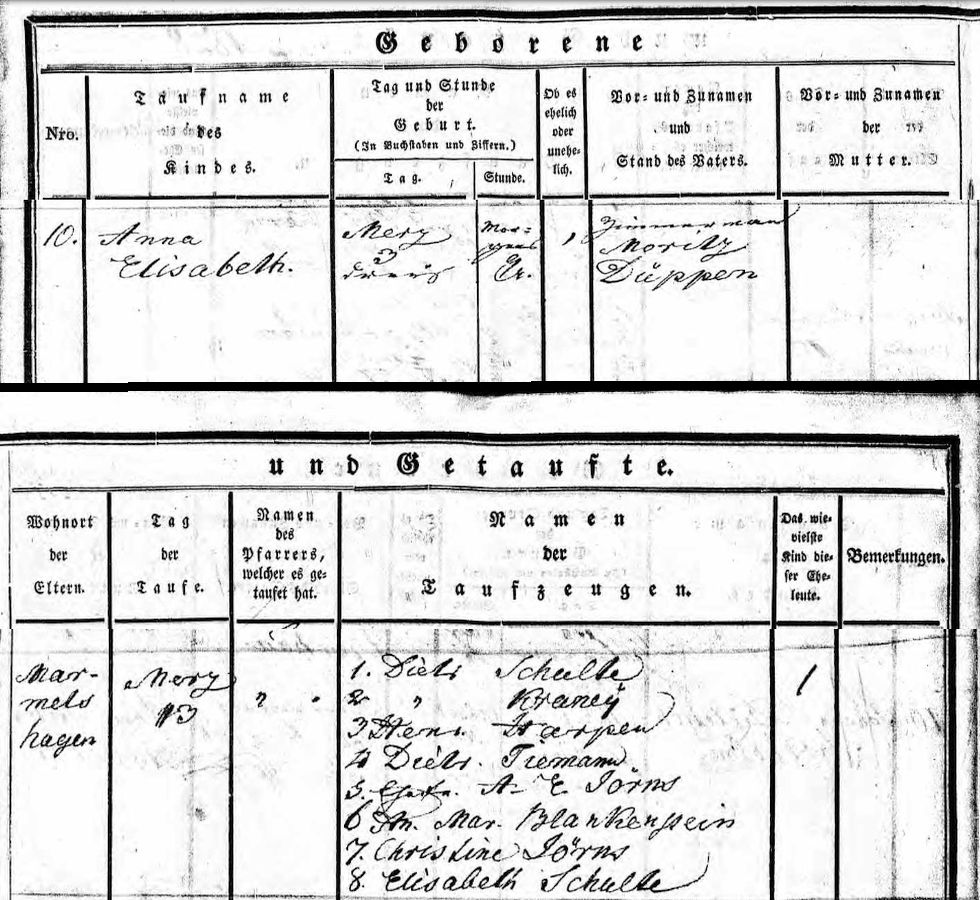 Geborene
Nro.
Taufname
des
Kindes.
Tag und Stunde
der
Geburt.
(In Buchstaben und Ziffern.)
Tag.
Stunde.
Ob es
ehelich
oder
unehe-
lich.
Vor- und Zunamen
und
Stand des Vaters.
Vor- und Zunamen
der
Mutter.
10.
Anna
Elisabeth.
Merz
3
Mor=
gens
,
Zimmerman
Moritz
Düppen
und Getaufte.
Wohnort
der
Eltern.
Tag
der
Taufe.
Namen
des
Pfarrers,
welcher es ge-
taufet hat.
Namen
der
Taufzeugen.
Das wie-
vielste
Kind die-
ser Ehe-
leute.
Bemerkungen.
Mar-
mels
hagen
Merz
13
1. Dietr Schulte
2 " Kraney
3 Henr. Harpen
4 Dietr. Tiemann
5. A. E Jörns
6 An. Mar. Blankenstein
7. Christine Jörns
8. Elisabeth Schulte
1